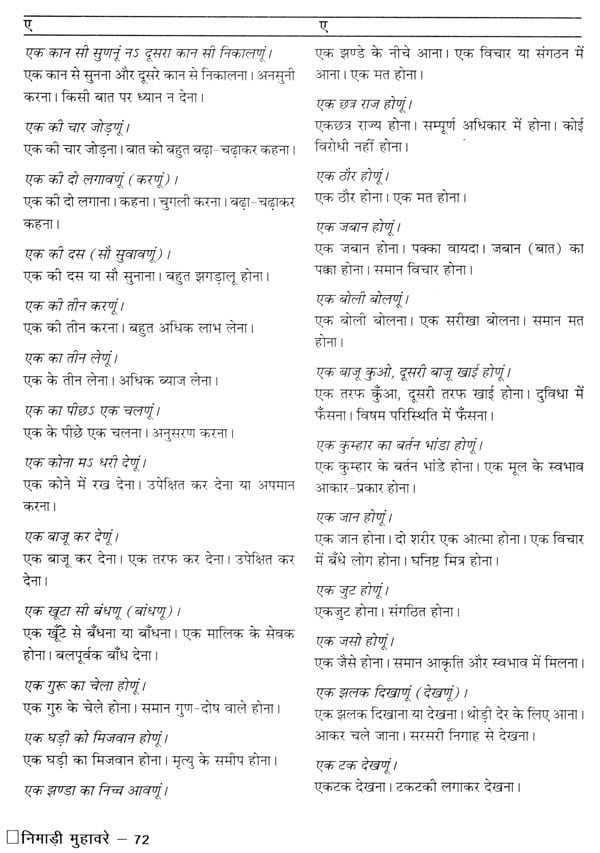 ए
ए
एक कान सी सुणनूं नऽ दूसरा कान सी निकालणूं।
एक कान से सुनना और दूसरे कान से निकालना। अनसुनी
करना। किसी बात पर ध्यान न देना।
एक की चार जोड़णूं।
एक की चार जोड़ना। बात को बहुत बढ़ा-चढ़ाकर कहना।
एक की दो लगावणूं (करणूं)।
एक की दो लगाना। कहना। चुगली करना। बढ़ा-चढ़ाकर
कहना।
एक की दस (सौ सुवावणूं)।
एक की दस या सौ सुनाना। बहुत झगड़ालू होना।
एक की तीन करणूं।
एक की तीन करना। बहुत अधिक लाभ लेना।
एक का तीन लेणूं।
एक के तीन लेना। अधिक ब्याज लेना।
एक का पीछऽ एक चलणूं।
एक के पीछे एक चलना। अनुसरण करना।
एक कोना मऽ धरी देणूं।
एक कोने में रख देना। उपेक्षित कर देना या अपमान
करना।
एक बाजू कर देणूं।
एक बाजू कर देना। एक तरफ कर देना। उपेक्षित कर
देना।
एक खूटा सी बंधणू (बांधणू)।
एक खूँटे से बँधना या बाँधना। एक मालिक के सेवक
होना। बलपूर्वक बाँध देना।
एक गुरू का चेला होणूं।
एक गुरु के चेले होना। समान गुण-दोष वाले होना।
एक घड़ी को मिजवान होणूं।
एक घड़ी का मिजवान होना। मृत्यु के समीप होना।
एक झण्डा का निच्च आवणूं।
एक झण्डे के नीचे आना। एक विचार या संगठन में
आना। एक मत होना।
एक छत्र राज होणूं।
एकछत्र राज्य होना। सम्पूर्ण अधिकार में होना। कोई
विरोधी नहीं होना।
एक ठौर होणूं।
एक ठौर होना। एक मत होना।
एक जबान होणूं।
एक जबान होना। पक्का वायदा। जबान (बात) का
पक्का होना। समान विचार होना।
एक बोली बोलणूं।
एक बोली बोलना। एक सरीखा बोलना। समान मत
होना।
एक बाजू कुओ, दूसरी बाजू खाई होणूं।
एक तरफ कुँआ, दूसरी तरफ खाई होना। दुविधा में
फँसना। विषम परिस्थिति में फँसना।
एक कुम्हार का बर्तन भांडा होणूं।
एक कुम्हार के बर्तन भांडे होना। एक मूल के स्वभाव
आकार-प्रकार होना।
एक जान होणूं।
एक जान होना। दो शरीर एक आत्मा होना। एक विचार
में बँधे लोग होना। घनिष्ट मित्र होना।
एक जुट होणूं।
एकजुट होना। संगठित होना।
एक जसो होणूं।
एक जैसे होना। समान आकृति और स्वभाव में मिलना।
एक झलक दिखाणूं (देखणूं)।
एक झलक दिखाना या देखना। थोड़ी देर के लिए आना।
आकर चले जाना। सरसरी निगाह से देखना।
एक टक देखणूं।
एकटक देखना। टकटकी लगाकर देखना।
निमाड़ी मुहावरे – 72